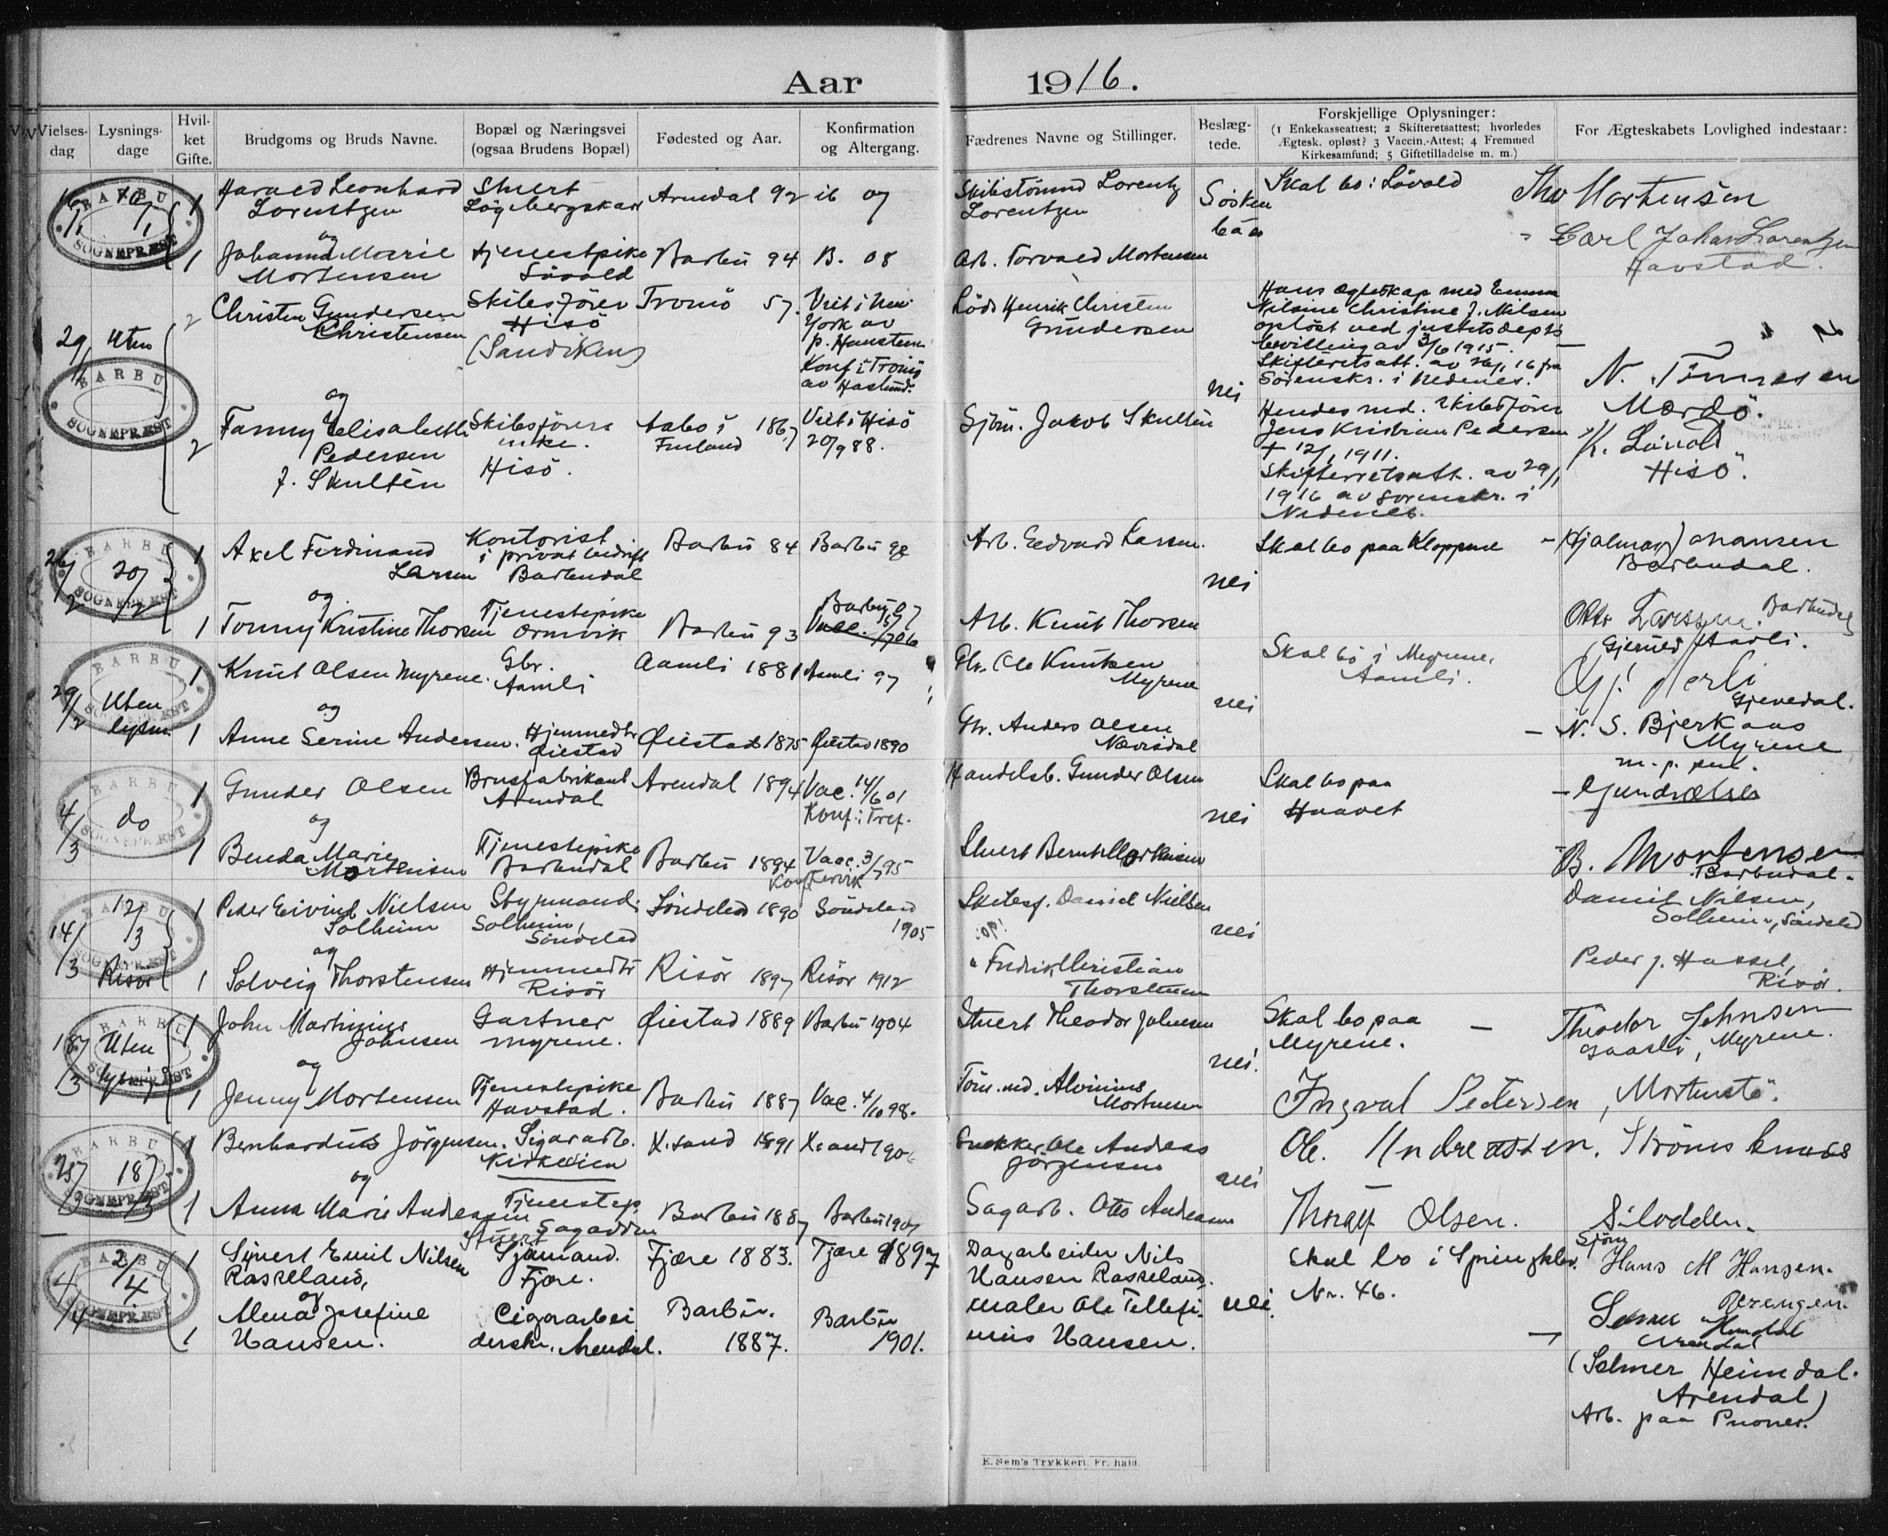 Aar 1916.
Vielses-dag
Lysnings-dage
Hvil-ket Gifte.
Brudgoms og Bruds Navne.
Bopæl og Næringsvei (ogsaa Brudens Bopæl)
Fødested og Aar.
Konfirmation og Altergang.
Fædrenes Navne og Stillinger.
Beslæg-tede.
Forskjellige Oplysninger:
(1 Enkekasseattest; 2 Skifteretsattest; hvorledes
Ægtesk. opløst? 3 Vaccin.-Attest; 4 Fremmed
Kirkesamfund; 5 Giftetilladelse m. m.)
For Ægteskabets Lovlighed indestaar:
BARBU SOGNEPRÆST
1 Harald Leonhard Stuert Arendal 92 ib 07 Lorentz Søsken Skal bo: Løvold Mortensen
Lorentzen Løgebergskar Lorentzen
og Carl Johan Lorentzen
1 Johanna Marie Tjenestpike Barbu 94 B. 08 Arb. Torvald Mortensen Havstad.
Mortensen Løvold
2 Christen Gundersen Skibsfører Tromö 57. Viet i New Henrik Christen Hans egteskap med Emma
Christensen Hisö York av Gundersen Nilsine Christine f. Nilsen
29/1 Uten (Sandviken) p. Hansteen opløst ved justitsdepts
Konf. i Tromö bevilling av 3/6 1915.
av Haslund. Skifteretsatt. av 26/1 16 fra
Sorenskr. i Nedenes. N. Tönnesen
og nei Mærdö.
2 Fanny Elisabeth Skibsförers Aabo i 1867 Viet i Hisö Sjöm. Jakob Skultén Hendes md. Skibsförer
Pedersen enke. Finland 20/9 88. Jens Kristian Pedersen K. Lövold
f. Skultén Hisö. + 12/1 1911. Hisö.
Skifterretsatt. av 29/1
1916 av Sorenskr. i
Nedenes.
BARBU SOGNEPRÆST
26/2 20/2 1 Axel Ferdinand Kontorist Barbu 84 Barbu 98 Arb. Edvard Larsen. Skal bo paa Kloppene Hjalmar Johansen
Larsen i privat bedrift Barbudal nei Barbudal.
og
1 Tonny Kristine Thorsen Tjenestepike Ormvik Barbu 93 Barbu 07 Arb. Knut Thorsen Otto Larssen. Barbudal
BARBU SOGNEPRÆST
29/2 Uten lysn. 1 Knut Olsen Myrene. Gbr. Aamli Aamli 1881 Aamli 97 Gbr. Ole Knutsen Myrene nei Skal bo i Myrene, Aamli.
og Gjevedal.
1 Anne Serine Andersen. Hjemmedtr Øiestad Øiestad 1875 Øiestad 1890 Gbr. Anders Olsen Nævisdal N. S. Bjerkaas
Myrene
m. p. pen.
BARBU SOGNEPRÆST
4/3 do 1 Gunder Olsen Brusfabrikant Arendal Arendal 1894 Vac. 14/6 01 Konf. i Tref. Handelsb. Gunder Olsen nei Skal bo paa Haavet
og
1 Benda Marie Mortensen Tjenestepike Barbudal Barbu 1894 Vacc. 3/7 95 Stuert Bernt Mortensen B. Mortensen
Barbudal.
BARBU SOGNEPRÆST
14/3 12/3 Risör 1 Peder Eivind Nielsen Solheim Styrmand Solheim, Söndeled Söndeled 1890 Söndeled 1905 Skibsf. Daniel Nielsen nei Daniel Nilsen,
Solheim, Söndeled
og
1 Solveig Thorstensen Hjemmedtr Risör Risör 1897 Risör 1912 Fredrik Christian Thorstensen Peder J. Hassel,
Risör.
BARBU SOGNEPRÆST
18/3 Uten lysn. 1 John Martinius Johnsen Gartner Myrene. Øiestad 1889 Barbu 1904 Stuert Theodor Johnsen nei. Skal bo paa Myrene. Theodor Johnsen
Myrene.
og
1 Jenny Mortensen Tjenestepike Havstad. Barbu 1887 Vac. 4/10 98. Töm.md. Alvinius Mortensen Ingval Pedersen, Mortenstö.
BARBU SOGNEPRÆST
25/3 18/3 1 Bernhardus Jörgensen. Sigararb. Kirkeveien K.sand 1891 K.sand 190 Snekker Ole Andreas Jörgensen nei Ole Andreassen. Strömsbuneset
og
1 Anna Marie Andersen Tjenestep. Sagodden Barbu 1887 Barbu 1901 Sagarb. Otto Andersen Thoralf Olsen. Silodden.
BARBU SOGNEPRÆST
4/4 2/4 1 Sivert Emil Nilsen Rasseland, Stuert Sjömand. Fjære. Fjære 1883. Fjære 1897 Dagarbeider Nils Hansen Rasseland. nei. Skal bo i Springkbr. Nr. 46. Sjöm Hans M Hansen.
og
1 Alma Josefine Hansen. Cigararbeiderske, Arendal. Barbu. 1887. Barbu 1901. Maler Ole Tellefinius Hansen.
Arendal
(Selmer Heimdal.
Arendal)
Arb. paa Pusnes.
E. Sem's Trykkeri, Fr. hald.